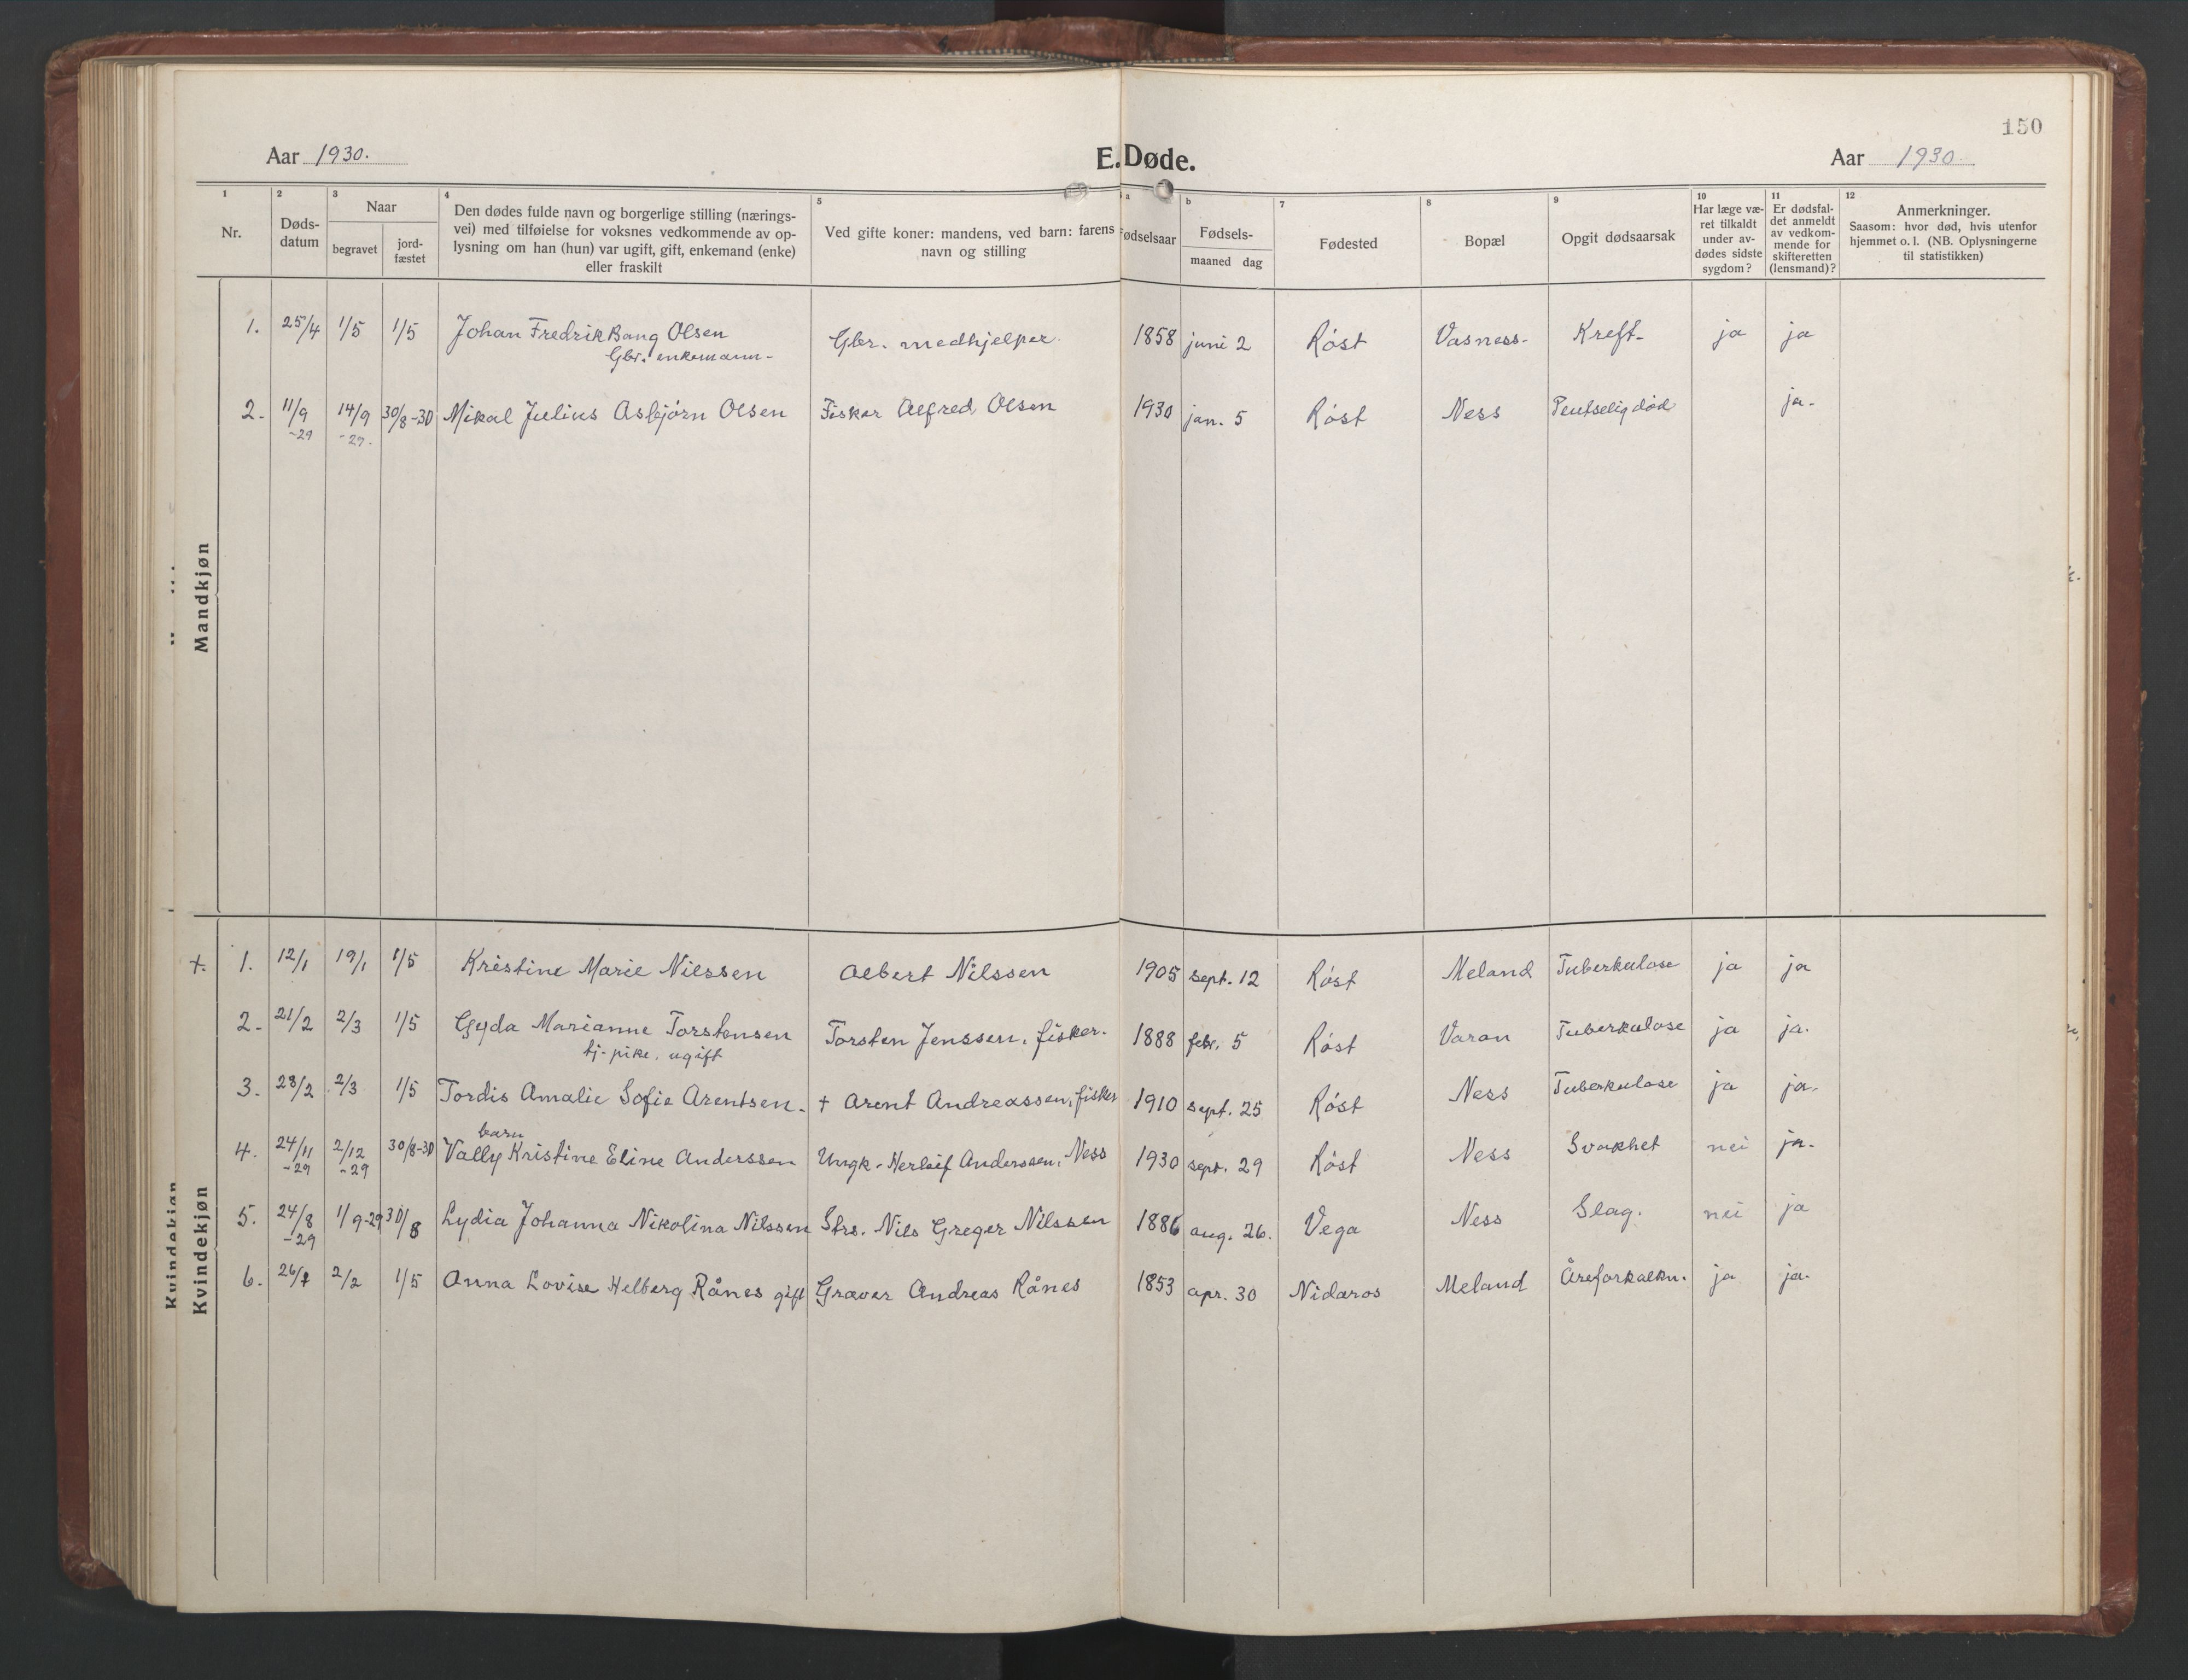 150
Aar 1930.
E. Døde.
Aar 1930.
1 2 3 4 5 a b 7 8 9 10 11 12
Nr.
Døds-
datum
Naar
begravet
jord-
fæstet
Den dødes fulde navn og borgerlige stilling (nærings-
vei) med tilføielse for voksnes vedkommende av op-
lysning om han (hun) var ugift, gift, enkemand (enke)
eller fraskilt
Ved gifte koner: mandens, ved barn: farens
navn og stilling
Fødselsaar
Fødsels-
maaned dag
Fødested
Bopæl
Opgit dødsaarsak
Har læge væ-
ret tilkaldt
under av-
dødes sidste
sygdom?
Er dødsfal-
det anmeldt
av vedkom-
mende for
skifteretten
(lensmand)?
Anmerkninger.
Saasom: hvor død, hvis utenfor
hjemmet o. l. (NB. Oplysningerne
til statistikken)
Mandkjøn
1. 25/4 1/5 1/5 Johan Fredrik Bang Olsen Gbr. medhjelper. 1858 juni 2 Røst Vasness. Kreft- ja ja
Gbr. enkemann-
2. 11/9 14/9 30/8-30 Mikal Julius Asbjørn Olsen Fisker Alfred Olsen 1930 jan. 5 Røst Ness Plutselig død ja.
-29 -29.
Kvindekjøn
+. 1. 12/1 19/1 1/5 Kristine Marie Nilssen Albert Nilssen 1905 sept. 12 Røst Meland Tuberkulose ja ja
2. 21/2 2/3 1/5 Gyda Marianne Torstensen Torsten Jenssen, fisker. 1888 febr. 5 Røst Varan Tuberkulose ja ja.
tj-pike, ugift
3. 23/2 2/3 1/5 Tordis Amalie Sofie Arentsen. + Arent Andreassen, fisker 1910 sept. 25 Røst Ness Tuberkulose ja ja.
barn
4. 24/11 2/12 30/8-30 Vally Kristine Eline Anderssen Ungk. Herleif Anderssen, Ness 1930 sept. 29 Røst Ness Svakhet nei ja.
-29 -29
5. 24/8 1/9-29 30/8 Lydia Johanna Nikolina Nilssen Strs. Nils Greger Nilssen 1886 aug. 26. Vega Ness Slag. nei ja
-29
6. 2/2 1/5 Anna Lovise Helberg Rånes gift Graver Andreas Rånes 1853 apr. 30 Nidaros Meland Åreforkalkn. ja ja.
Kvindekjøn